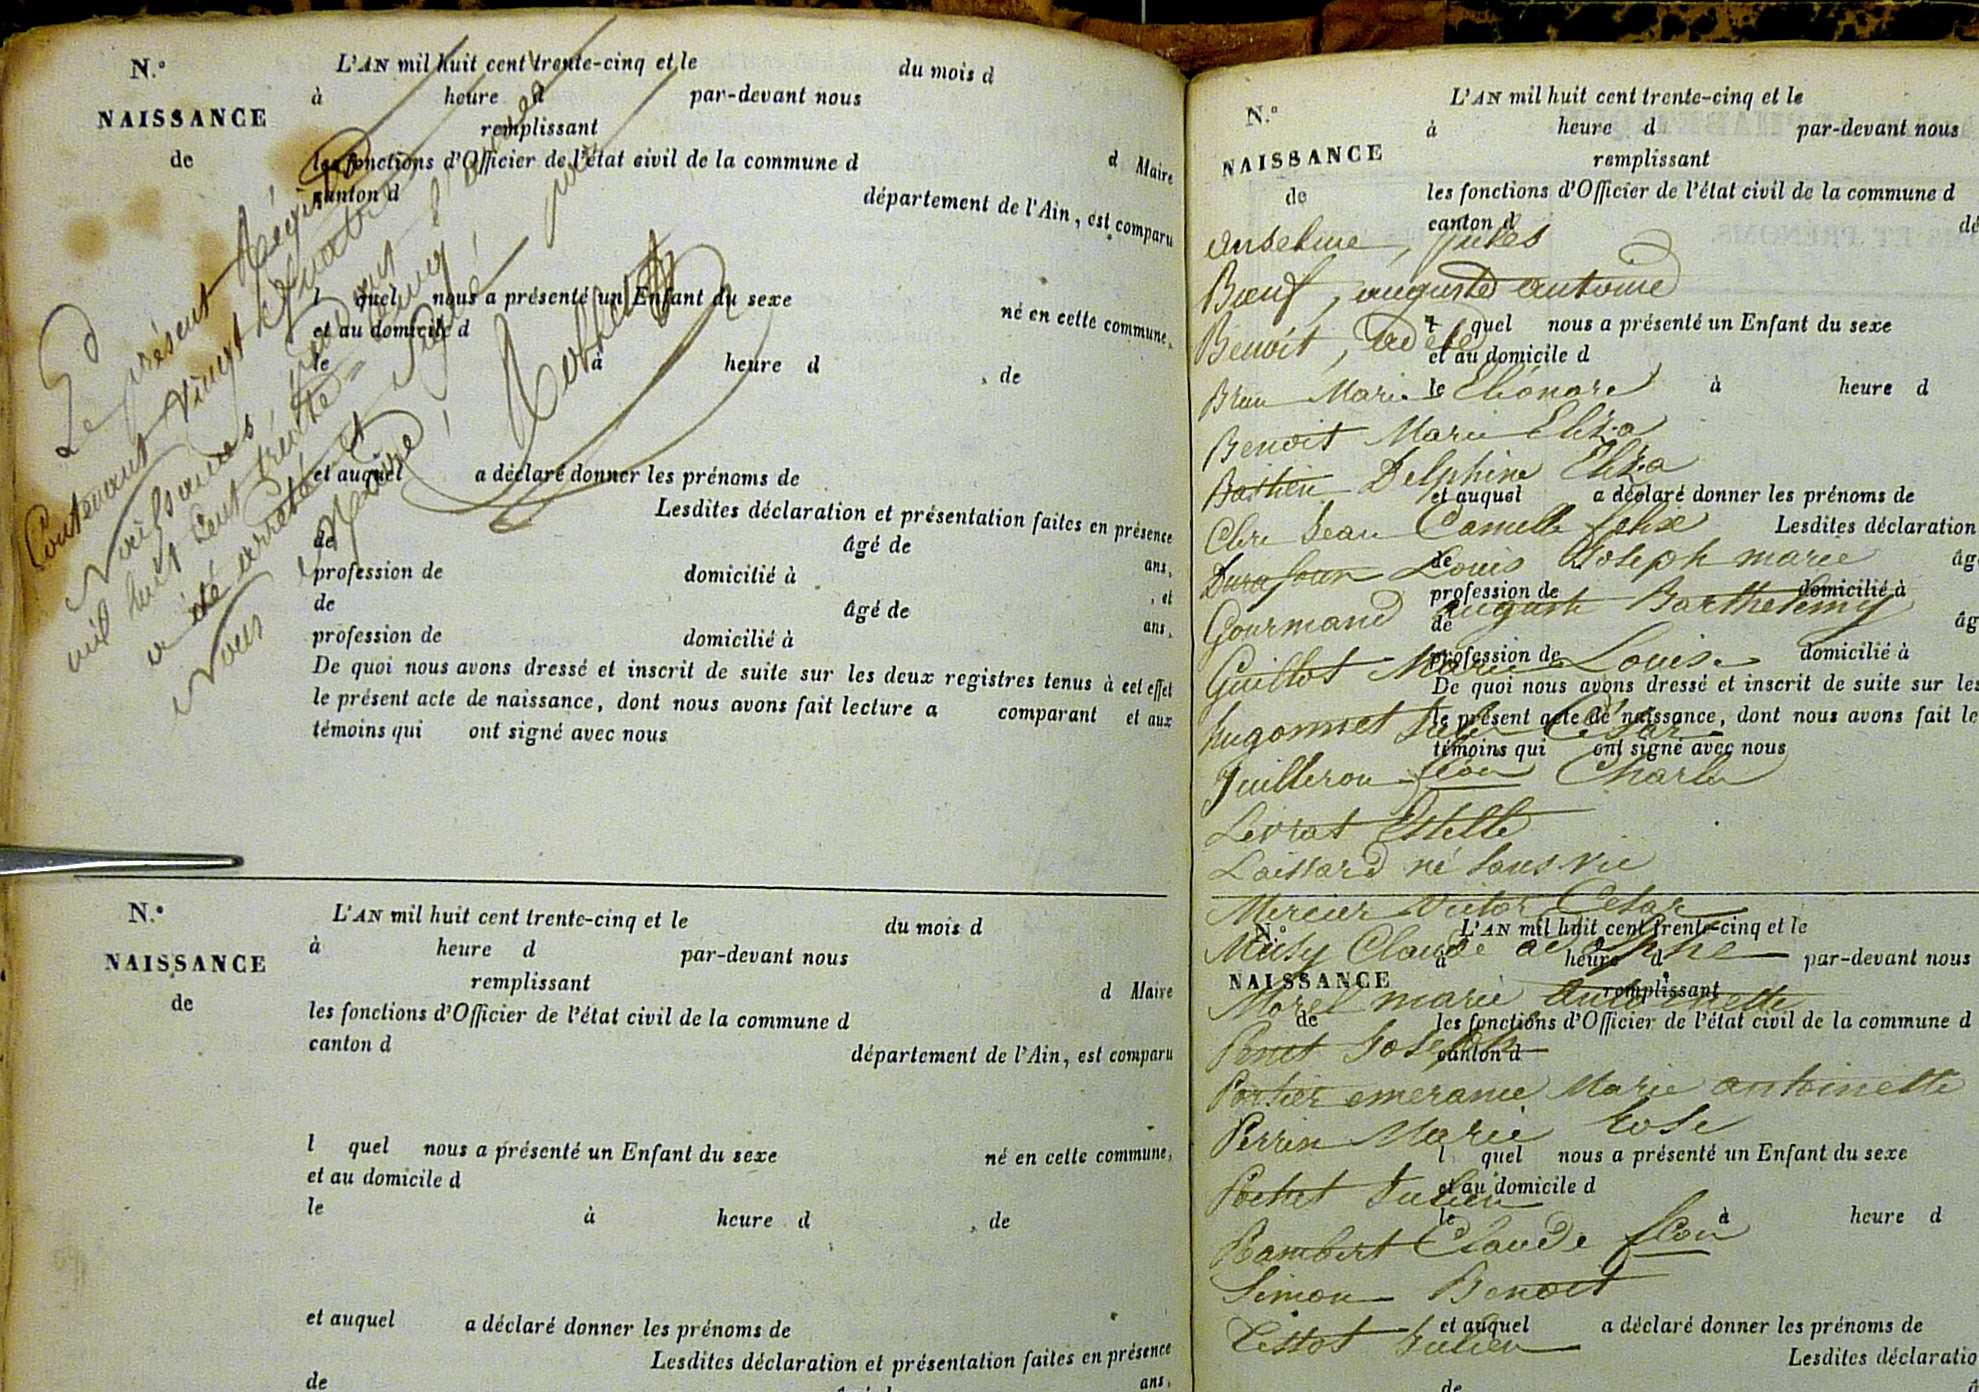 N.°
NAISSANCE
de
L'AN mil huit cent trente-cinq et le du mois d
à heure d par-devant nous
remplissant
les fonctions d'Officier de l'état civil de la commune d
d Maire
canton d
département de l'Ain, est comparu
l quel nous a présenté un Enfant du sexe
né en cette commune,
et au domicile d
le à heure d , de
et auquel a déclaré donner les prénoms de
Lesdites déclaration et présentation faites en présence
de âgé de ans,
profession de domicilié à , et
de âgé de ans,
profession de domicilié à
De quoi nous avons dressé et inscrit de suite sur les deux registres tenus à cet effet
le présent acte de naissance, dont nous avons fait lecture a comparant et aux
témoins qui ont signé avec nous
Le présent Régistre
Contenant Vingt & quatre
Naissances pendant l'année
mil huit Cent trente Cinq
a été arrêté et signé par
Nous Maire!
N.°
NAISSANCE
de
L'AN mil huit cent trente-cinq et le du mois d
à heure d par-devant nous
remplissant
d Maire
les fonctions d'Officier de l'état civil de la commune d
canton d
département de l'Ain, est comparu
l quel nous a présenté un Enfant du sexe né en cette commune,
et au domicile d
le à heure d , de
et auquel a déclaré donner les prénoms de
Lesdites déclaration et présentation faites en présence
de ans,
N.°
NAISSANCE
de
L'AN mil huit cent trente-cinq et le
à heure d par-devant nous
remplissant
les fonctions d'Officier de l'état civil de la commune d
canton d dé
anselme, Jules
Bœuf, auguste antoine
l quel nous a présenté un Enfant du sexe
Benoit, adele
et au domicile d
Brun Marie Eléonore
le à heure d
Benoit Marie Eliza
Bastien Delphine Eliza
et auquel a déclaré donner les prénoms de
Clere Jean Camille felix
Lesdites déclaration
Durafour Louis Joseph marie
de âg
profession de domicilié à
Gourmand august Barthelemy
de âg
Guillot Marie Louise
profession de domicilié à
De quoi nous avons dressé et inscrit de suite sur les
hugonnet Jules César
le présent acte de naissance, dont nous avons fait le
témoins qui ont signé avec nous
Juilleron fcon Charles
Levrat Estelle
Laissard né sans vie
Mercier Victor César
N.°
L'AN mil huit cent trente-cinq et le
Musy Claude adolphe
à heure d par-devant nous
NAISSANCE
remplissant
Morel marie antoinette
de
les fonctions d'Officier de l'état civil de la commune d
Penet Joseph
canton d
Portier emeranie Marie antoinette
Perrin Marie Rose
l quel nous a présenté un Enfant du sexe
et au domicile d
Pochet Julien
le à heure d
Rambert Claude fcon
Simon Benoit
et auquel a déclaré donner les prénoms de
Tissot Julien
Lesdites déclaratio
de